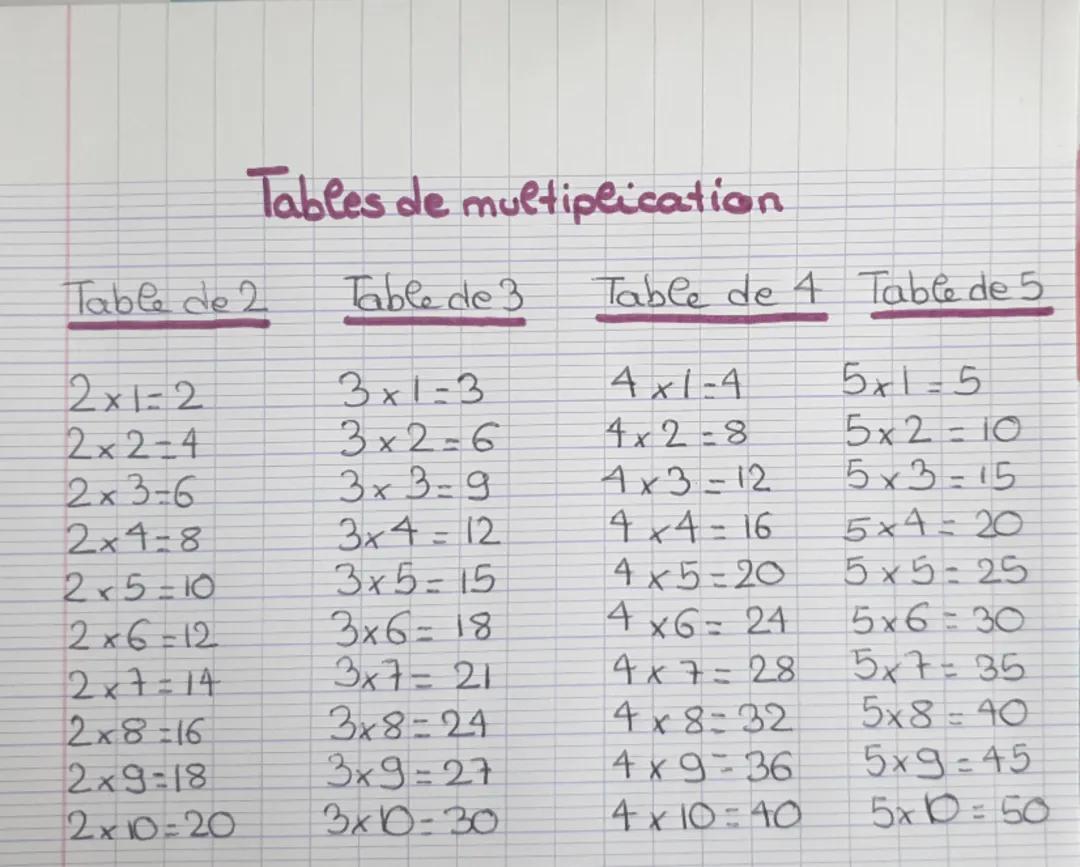 Tables de multiplication
Table de 2 Table de 3 Table de 4 Table de 5
2x1=2 3x1=3 4x1=4 5x1=5
2x2=4 3x2=6 4x2=8 5x2=10
2x3=6 3x3=9 4x3=12 5x3=15
2x4=8 3x4=12 4x4=16 5x4=20
2x5=10 3x5=15 4x5=20 5x5=25
2x6=12 3x6=18 4x6=24 5x6=30
2x7=14 3x7=21 4x7=28 5x7=35
2x8=16 3x8=24 4x8=32 5x8=40
2x9=18 3x9=27 4x9=36 5x9=45
2x10=20 3x10=30 4x10=40 5x10=50